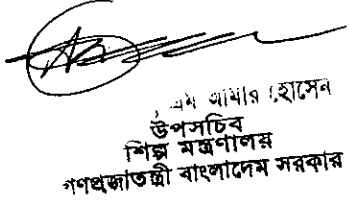 এম আমীর হোসেন
উপসচিব
শিল্প মন্ত্রণালয়
গণপ্রজাতন্ত্রী বাংলাদেশ সরকার